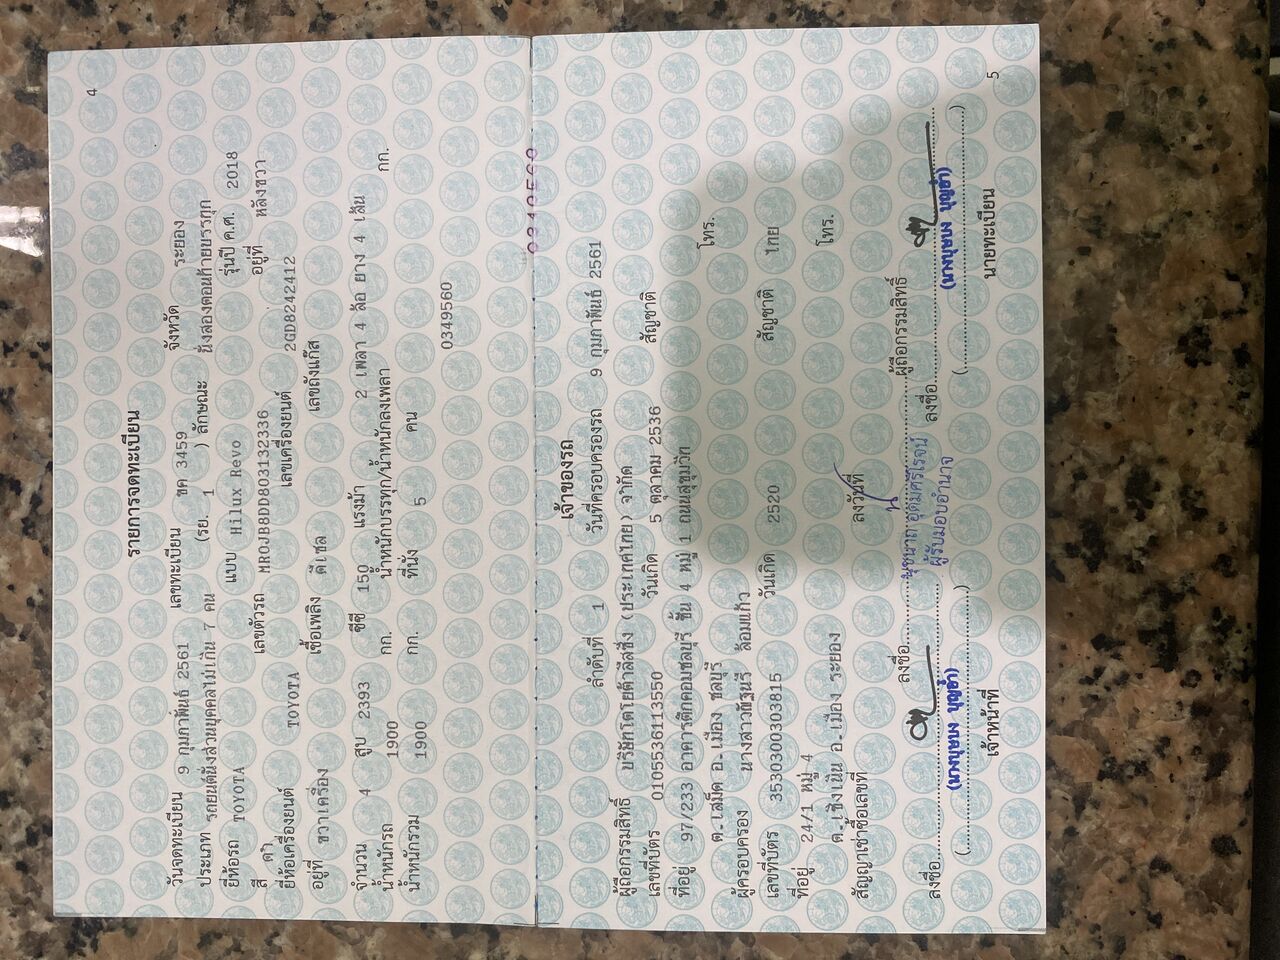 4
รายการจดทะเบียน
วันจดทะเบียน 9 กุมภาพันธ์ 2561 เลขทะเบียน ขค 3459 จังหวัด ระยอง
ประเภท รถยนต์นั่งส่วนบุคคลไม่เกิน 7 คน (รย. 1 ) ลักษณะ นั่งสองตอนท้ายบรรทุก
ยี่ห้อรถ TOYOTA แบบ Hilux Revo รุ่นปี ค.ศ. 2018
สี ดำ เลขตัวรถ MR0JB8DD803132336 อยู่ที่ หลังขวา
ยี่ห้อเครื่องยนต์ TOYOTA เลขเครื่องยนต์ 2GD8242412
อยู่ที่ ขวาเครื่อง เชื้อเพลิง ดีเซล เลขถังแก๊ส
จำนวน 4 สูบ 2393 ซีซี 150 แรงม้า 2 เพลา 4 ล้อ ยาง 4 เส้น
น้ำหนักรถ 1900 กก. น้ำหนักบรรทุก/น้ำหนักลงเพลา กก.
น้ำหนักรวม 1900 กก. ที่นั่ง 5 คน
0349560
0349560
เจ้าของรถ
ลำดับที่ 1 วันที่ครอบครองรถ 9 กุมภาพันธ์ 2561
ผู้ถือกรรมสิทธิ์ บริษัทโตโยต้าลีสซิ่ง (ประเทศไทย) จำกัด
เลขที่บัตร 0105536113550 วันเกิด 5 ตุลาคม 2536 สัญชาติ
ที่อยู่ 97/233 อาคารตึกคอมชลบุรี ชั้น 4 หมู่ 1 ถนนสุขุมวิท
ต.เสม็ด อ.เมือง ชลบุรี โทร.
ผู้ครอบครอง นางสาวรัชนรี ล้อมแก้ว
เลขที่บัตร 3530300303815 วันเกิด 2520 สัญชาติ ไทย
ที่อยู่ 24/1 หมู่ 4
ต.เชิงเนิน อ.เมือง ระยอง โทร.
สัญญาเช่าซื้อเลขที่ ลงวันที่
ลงชื่อ นุชนาถ อุดมศรีโรจน์ ผู้ถือกรรมสิทธิ์
ผู้รับมอบอำนาจ
ลงชื่อ ลงชื่อ
(..........) (..........)
เจ้าหน้าที่ นายทะเบียน
5